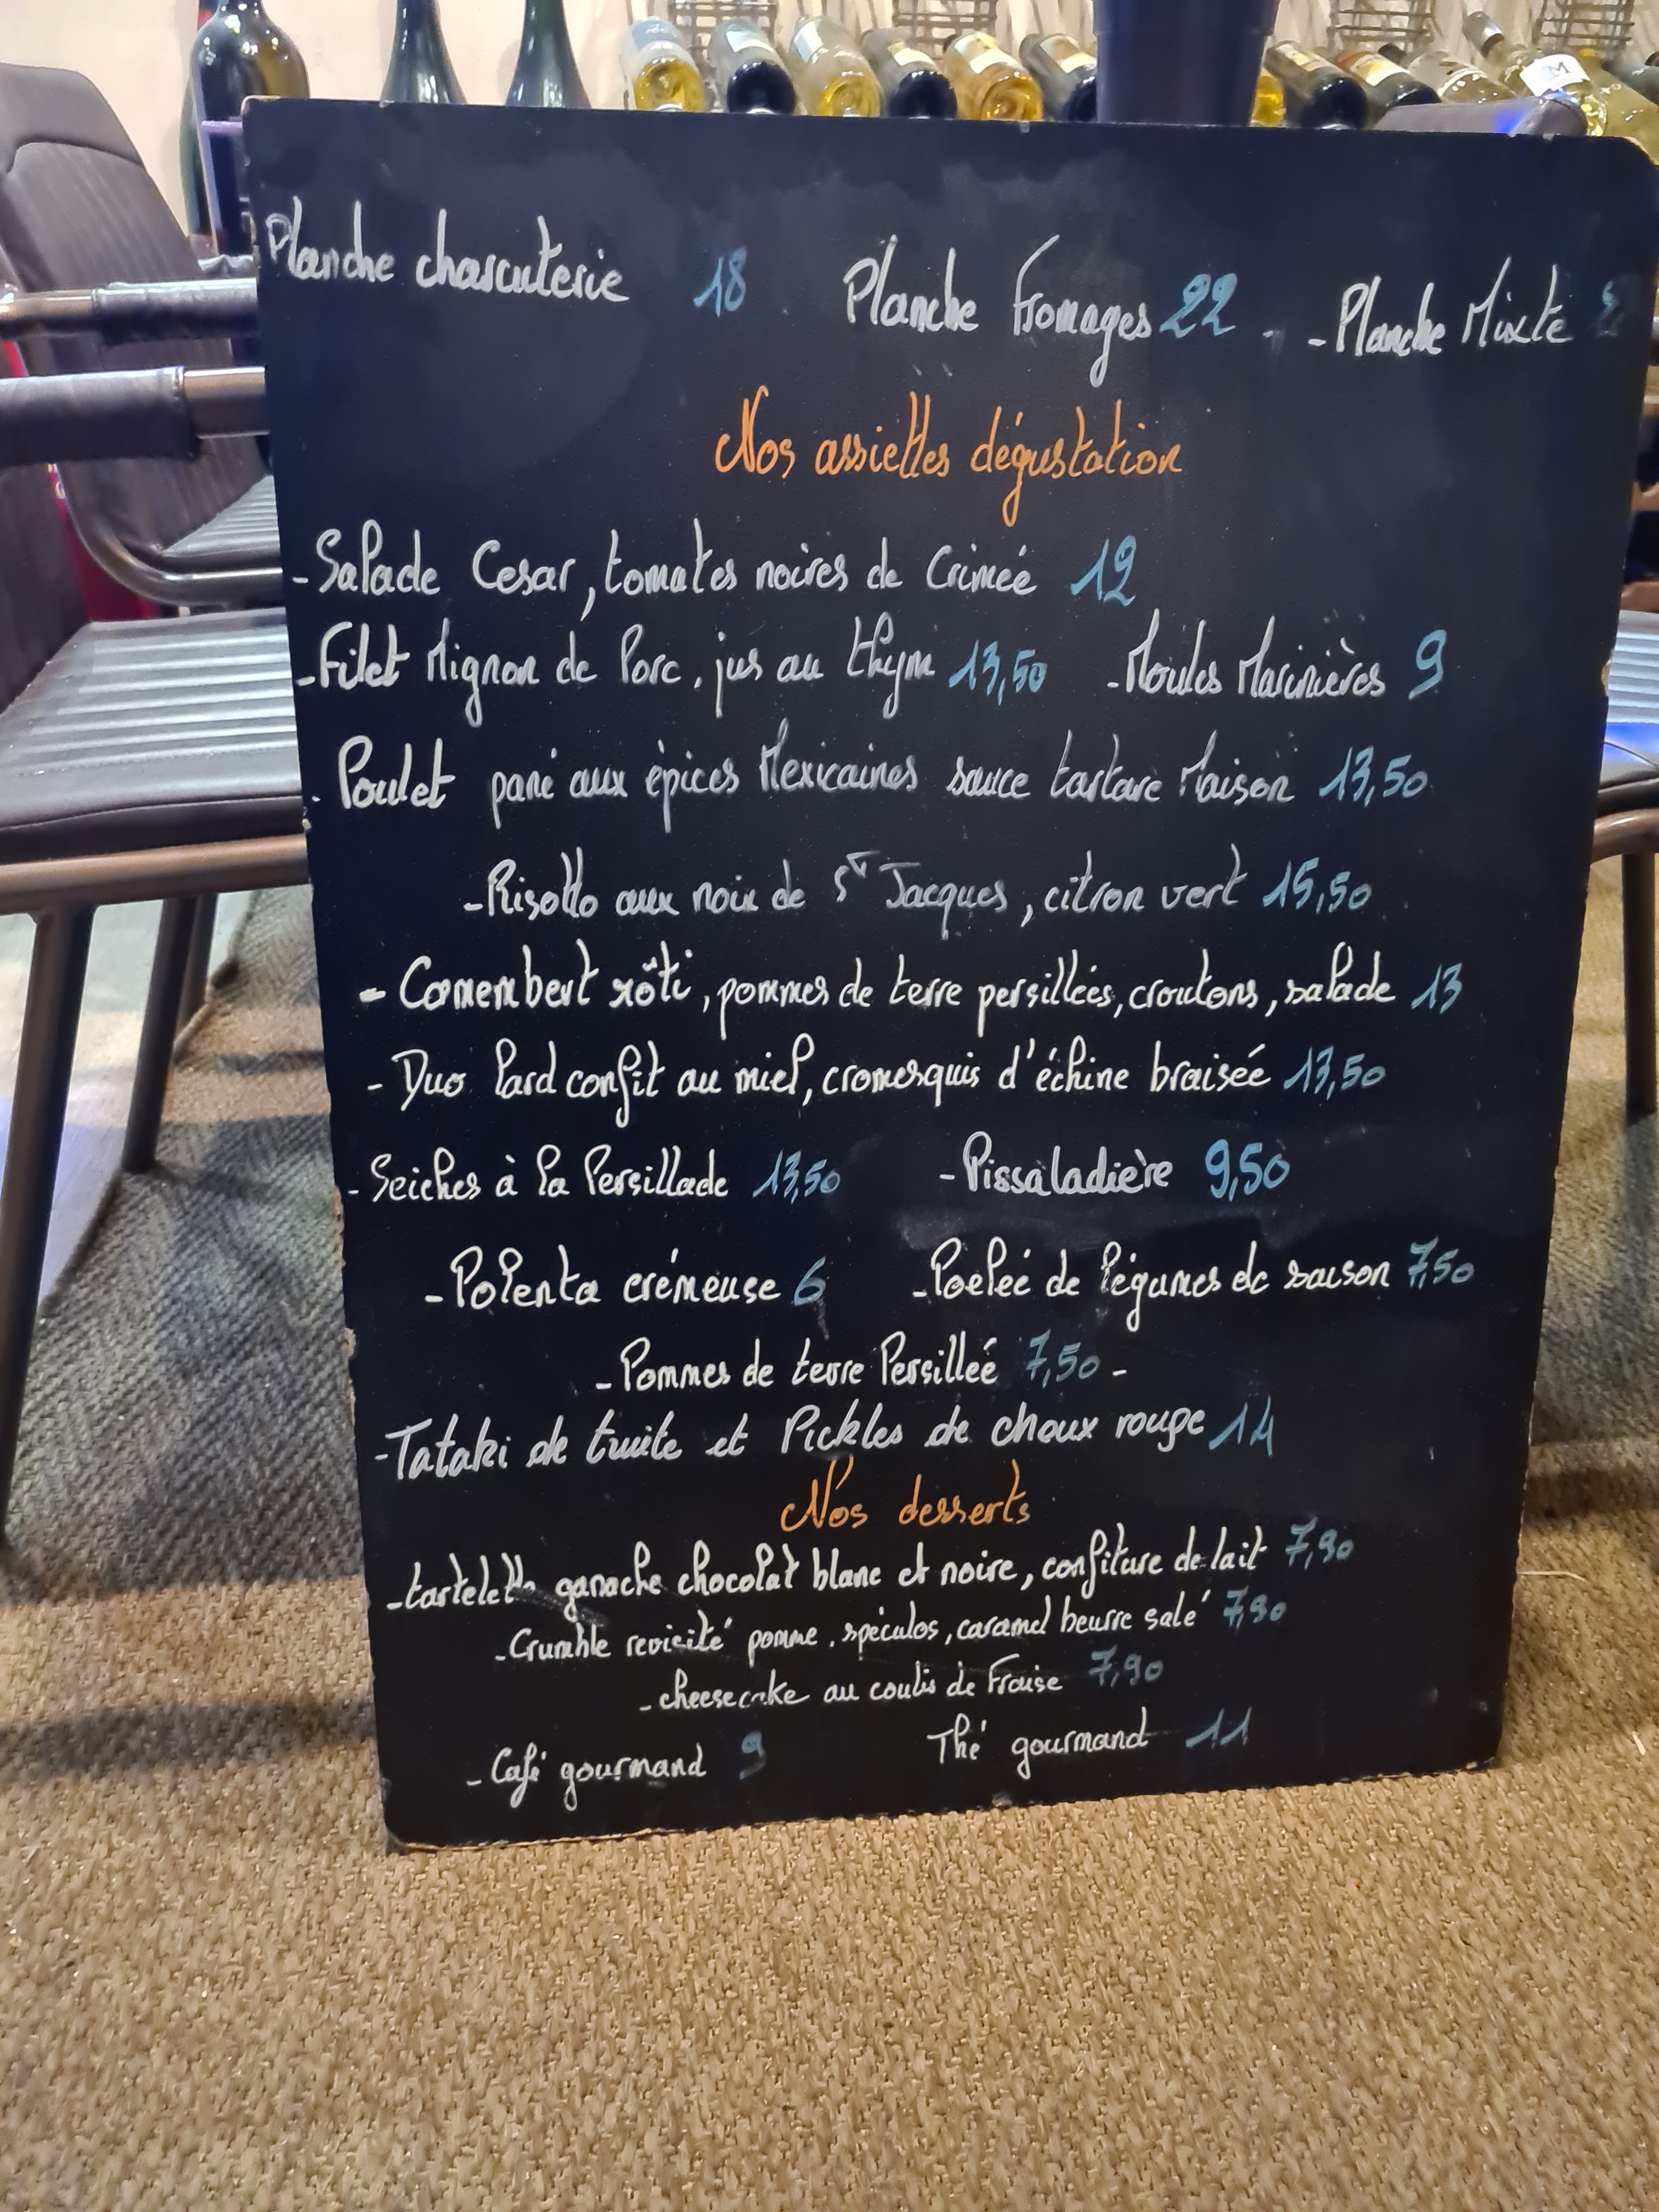 Planche charcuterie 18 Planche Fromages 22 - Planche Mixte
Nos assiettes dégustation
- Salade Cesar, tomates noires de Crimée 12
- Filet Mignon de Porc, jus au thym 13,50 - Moules Marinières 9
- Poulet pané aux épices Mexicaines sauce tartare Maison 13,50
- Risotto aux noix de St Jacques, citron vert 15,50
- Camembert rôti, pommes de terre persillées, croutons, salade 13
- Duo lard confit au miel, cromesquis d'échine braisée 13,50
- Seiches à la Persillade 13,50 - Pissaladière 9,50
- Polenta crémeuse 6 - Poeleé de légumes de saison 7,50
- Pommes de terre Persilleé 7,50 -
- Tataki de truite et Pickles de choux rouge 14
Nos desserts
- tartelette ganache chocolat blanc et noire, confiture de lait 7,90
- Crumble revicité pomme, spéculos, caramel beurre salé 7,90
- cheesecake au coulis de Fraise 7,90
- Café gourmand 9 Thé gourmand 11